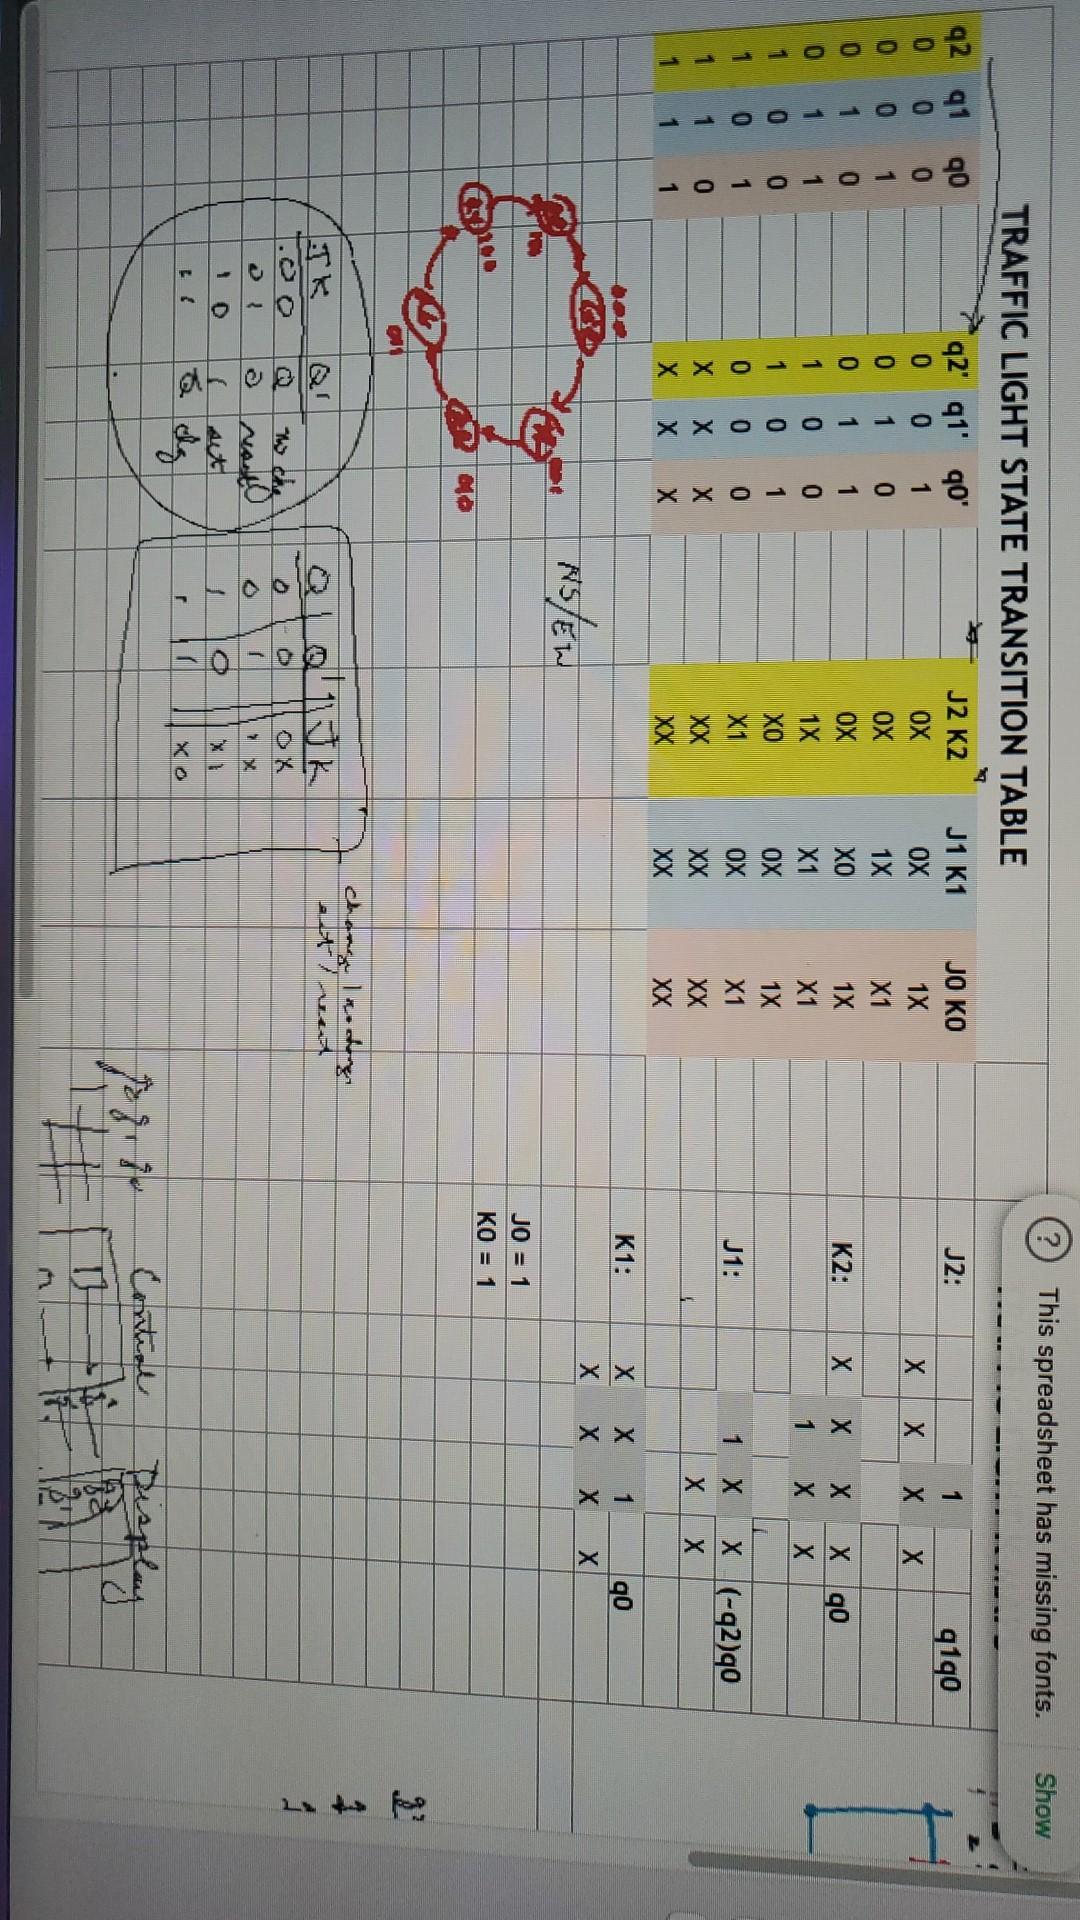 This spreadsheet has missing fonts. Show
TRAFFIC LIGHT STATE TRANSITION TABLE
q2 q1 q0 q2' q1' q0' J2 K2 J1 K1 J0 K0
0 0 0 0 0 1 0X 0X 1X
0 0 1 0 1 0 0X 1X X1
0 1 0 0 1 1 0X X0 1X
0 1 1 1 0 0 1X X1 X1
1 0 0 1 0 1 X0 0X 1X
1 0 1 0 0 0 X1 0X X1
1 1 0 X X X XX XX XX
1 1 1 X X X XX XX XX
J2: 1 q1q0
X X X X
K2: X X X X q0
1 X X
J1: 1 X X (-q2)q0
X X
K1: X X 1 q0
X X X X
J0 = 1
K0 = 1
NS/EW
000
001
010
011
100
101
J K Q'
0 0 Q no chg
0 1 0 reset
1 0 1 set
1 1 Q chg
Q Q' J K
0 0 0 X
0 1 1 X
1 0 X 1
1 1 X 0
change / no change
set / reset
Control Display